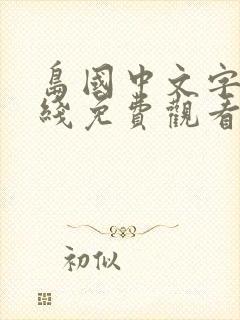 島國中文字
綫免費觀看
初似